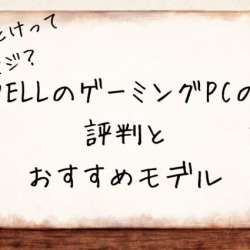 とけって
ジ?
DELLのゲーミングPCの
評判と
おすすめモデル